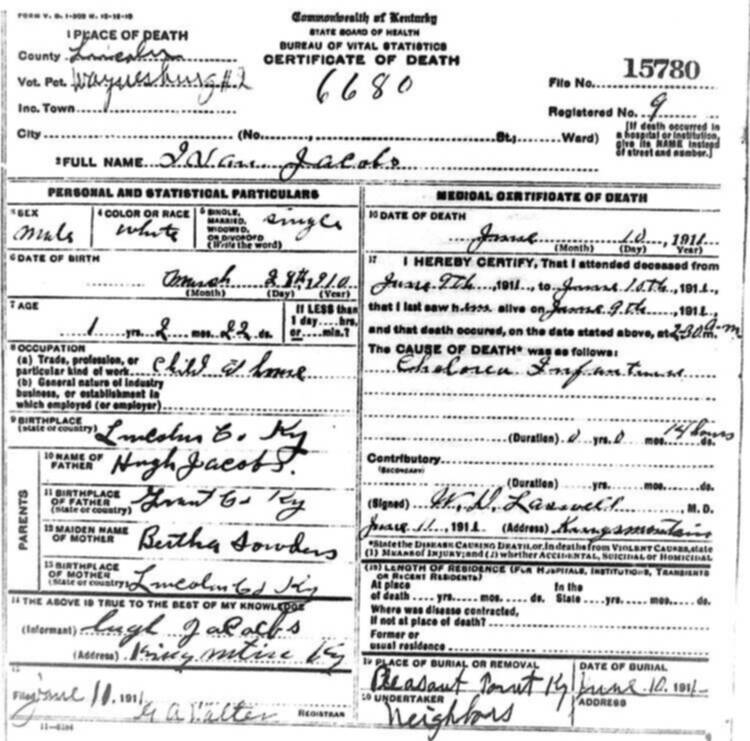 FORM V. S. 1-
Commonwealth of Kentucky
STATE BOARD OF HEALTH
BUREAU OF VITAL STATISTICS
CERTIFICATE OF DEATH
1 PLACE OF DEATH
County Lincoln
Vot. Pct. Waynesburg #2
Inc. Town
6680
File No. 15780
Registered No. 9
City (No., St.; Ward)
[If death occurred in a hospital or institution, give its NAME instead of street and number.]
2 FULL NAME Ivan Jacobs
PERSONAL AND STATISTICAL PARTICULARS
3 SEX
Male
4 COLOR OR RACE
White
5 SINGLE, MARRIED, WIDOWED, OR DIVORCED (Write the word)
single
6 DATE OF BIRTH
March 28th 1910
(Month) (Day) (Year)
7 AGE
1 yrs. 2 mos. 22 ds.
If LESS than 1 day....hrs. or....min.?
8 OCCUPATION
(a) Trade, profession, or particular kind of work Child at home
(b) General nature of industry business, or establishment in which employed (or employer)
9 BIRTHPLACE
(State or country) Lincoln Co Ky
PARENTS
10 NAME OF FATHER Hugh Jacobs
11 BIRTHPLACE OF FATHER (State or country) Grant Co Ky
12 MAIDEN NAME OF MOTHER Bertha Sowders
13 BIRTHPLACE OF MOTHER (State or country) Lincoln Co Ky
14 THE ABOVE IS TRUE TO THE BEST OF MY KNOWLEDGE
(Informant) Hugh Jacobs
(Address) Ky
15
Filed June 11, 1911 G A Walter
REGISTRAR
MEDICAL CERTIFICATE OF DEATH
16 DATE OF DEATH
June 10, 1911
(Month) (Day) (Year)
17 I HEREBY CERTIFY, That I attended deceased from
June 9th, 1911, to June 10th, 1911,
that I last saw him alive on June 9th, 1911,
and that death occured, on the date stated above, at 2:30 a.m.
The CAUSE OF DEATH* was as follows:
Cholorea Infantum
(Duration) 0 yrs. 0 mos. 14 hours ds.
Contributory
(SECONDARY)
(Duration) yrs. mos. ds.
(Signed) W. D. Laswell, M.D.
June 11, 1911 (Address) Kingsmountain
*State the DISEASE CAUSING DEATH, or, in deaths from VIOLENT CAUSES, state
(1) MEANS OF INJURY; and (2) whether ACCIDENTAL, SUICIDAL or HOMICIDAL
(18) LENGTH OF RESIDENCE (FOR HOSPITALS, INSTITUTIONS, TRANSIENTS OR RECENT RESIDENTS)
At place of death yrs. mos. ds. In the State yrs. mos. ds.
Where was disease contracted, if not at place of death?
Former or usual residence
19 PLACE OF BURIAL OR REMOVAL
Pleasant Point Ky
DATE OF BURIAL
June 10, 1911
20 UNDERTAKER
Neighbors
ADDRESS